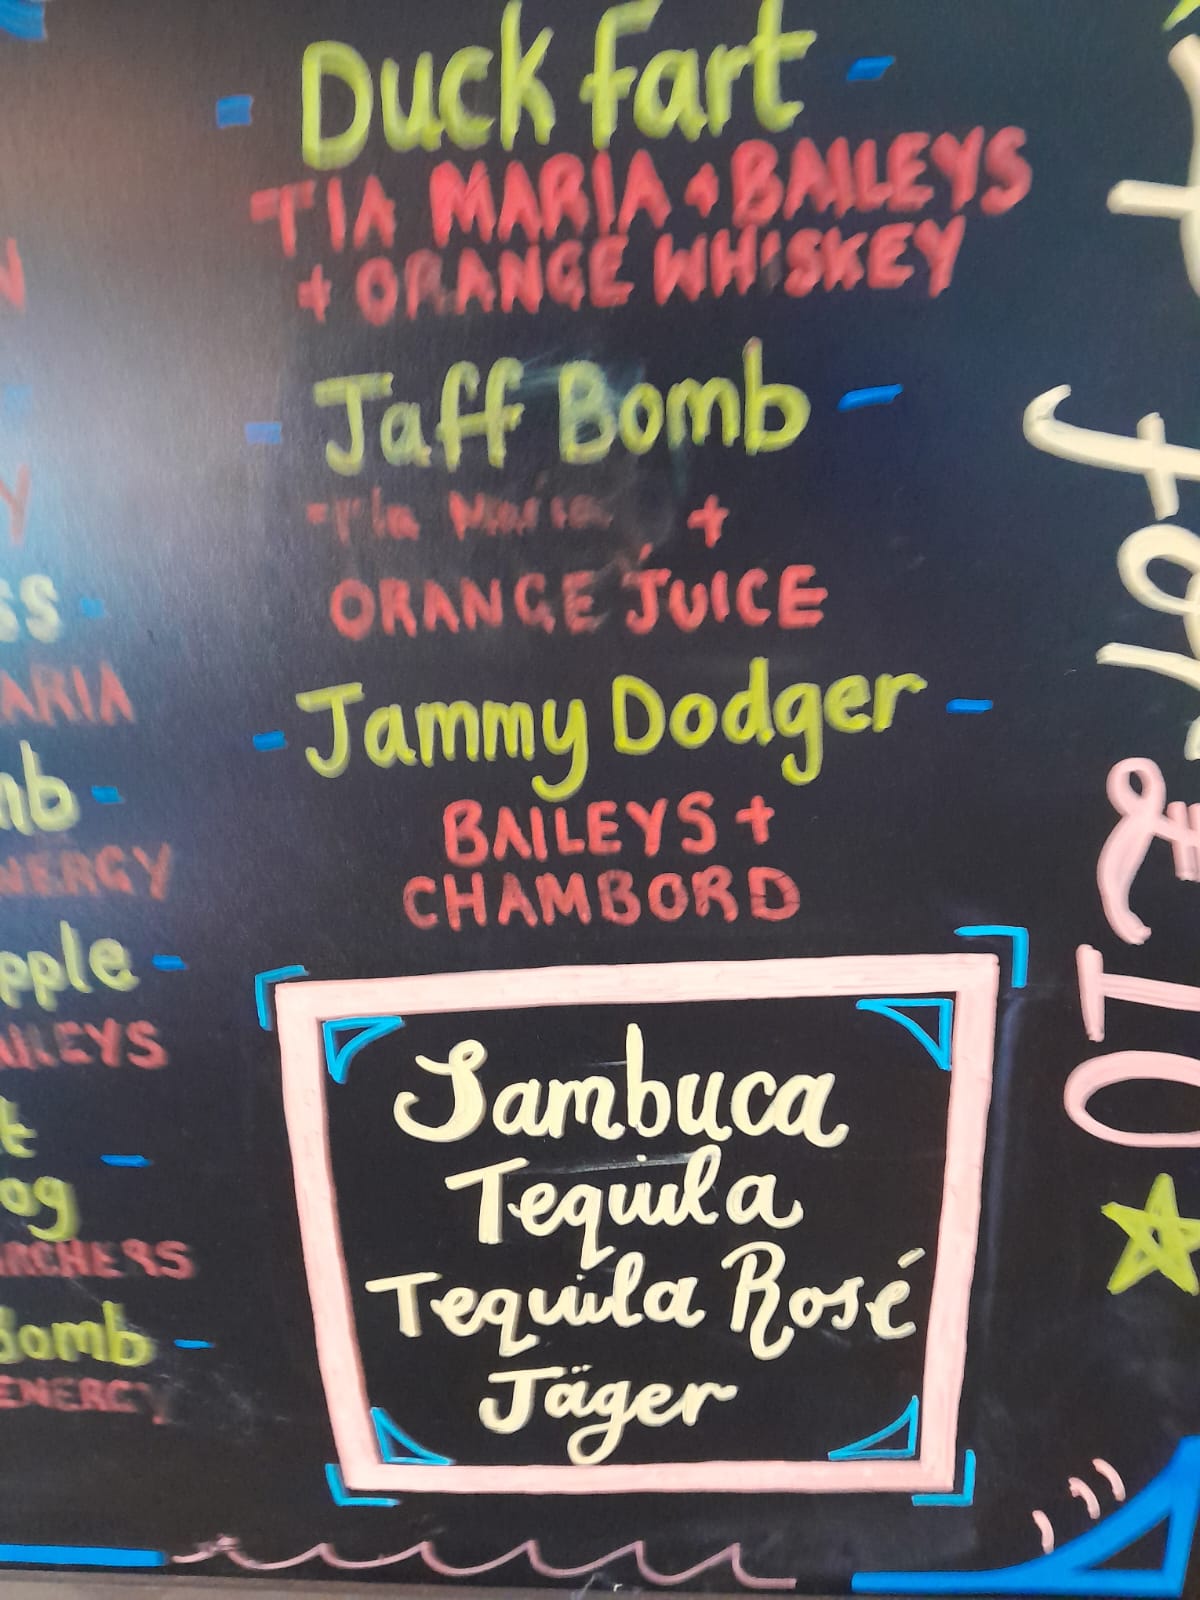 Duck Fart
TIA MARIA + BAILEYS
+ ORANGE WHISKEY
Jaff Bomb
Tia Maria +
ORANGE JUICE
Jammy Dodger
BAILEYS +
CHAMBORD
Sambuca
Tequila
Tequila Rosé
Jäger
N
Y
SS
ARIA
mb
NERGY
pple
AILEYS
t
og
ARCHERS
Bomb
ENERGY
for
£10